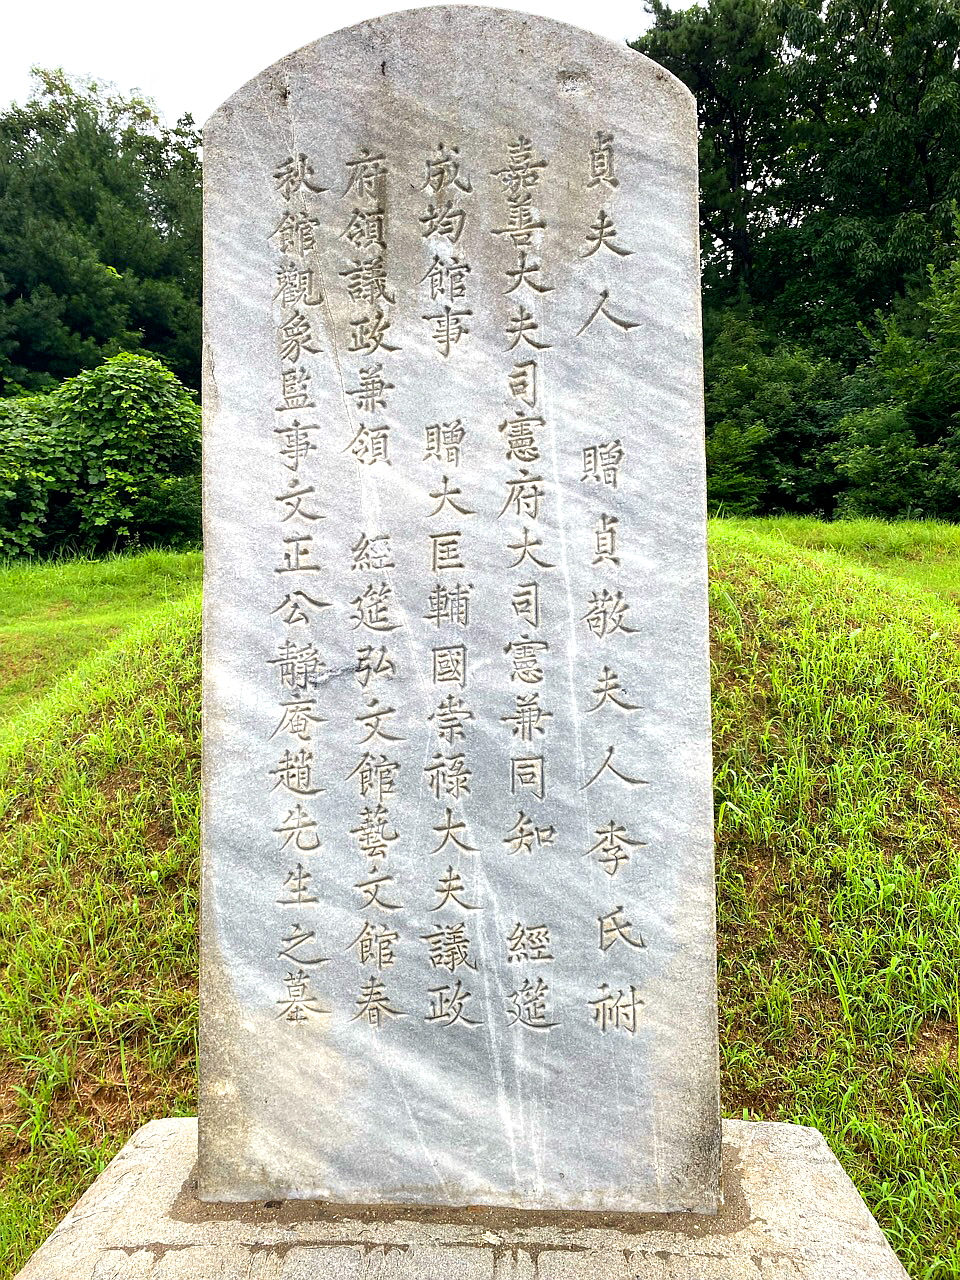 貞夫人 贈貞敬夫人李氏祔
嘉善大夫司憲府大司憲兼同知 經筵
成均館事 贈大匡輔國崇祿大夫議政
府領議政兼領 經筵弘文館藝文館春
秋館觀象監事文正公靜庵趙先生之墓